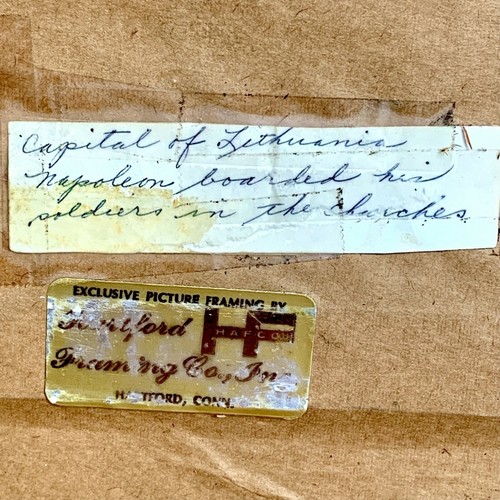 Capital of Lithuania
Napoleon boarded his
soldiers in the Churches
EXCLUSIVE PICTURE FRAMING BY
Hartford
HF
HAFCO
Framing Co., Inc
HARTFORD, CONN.